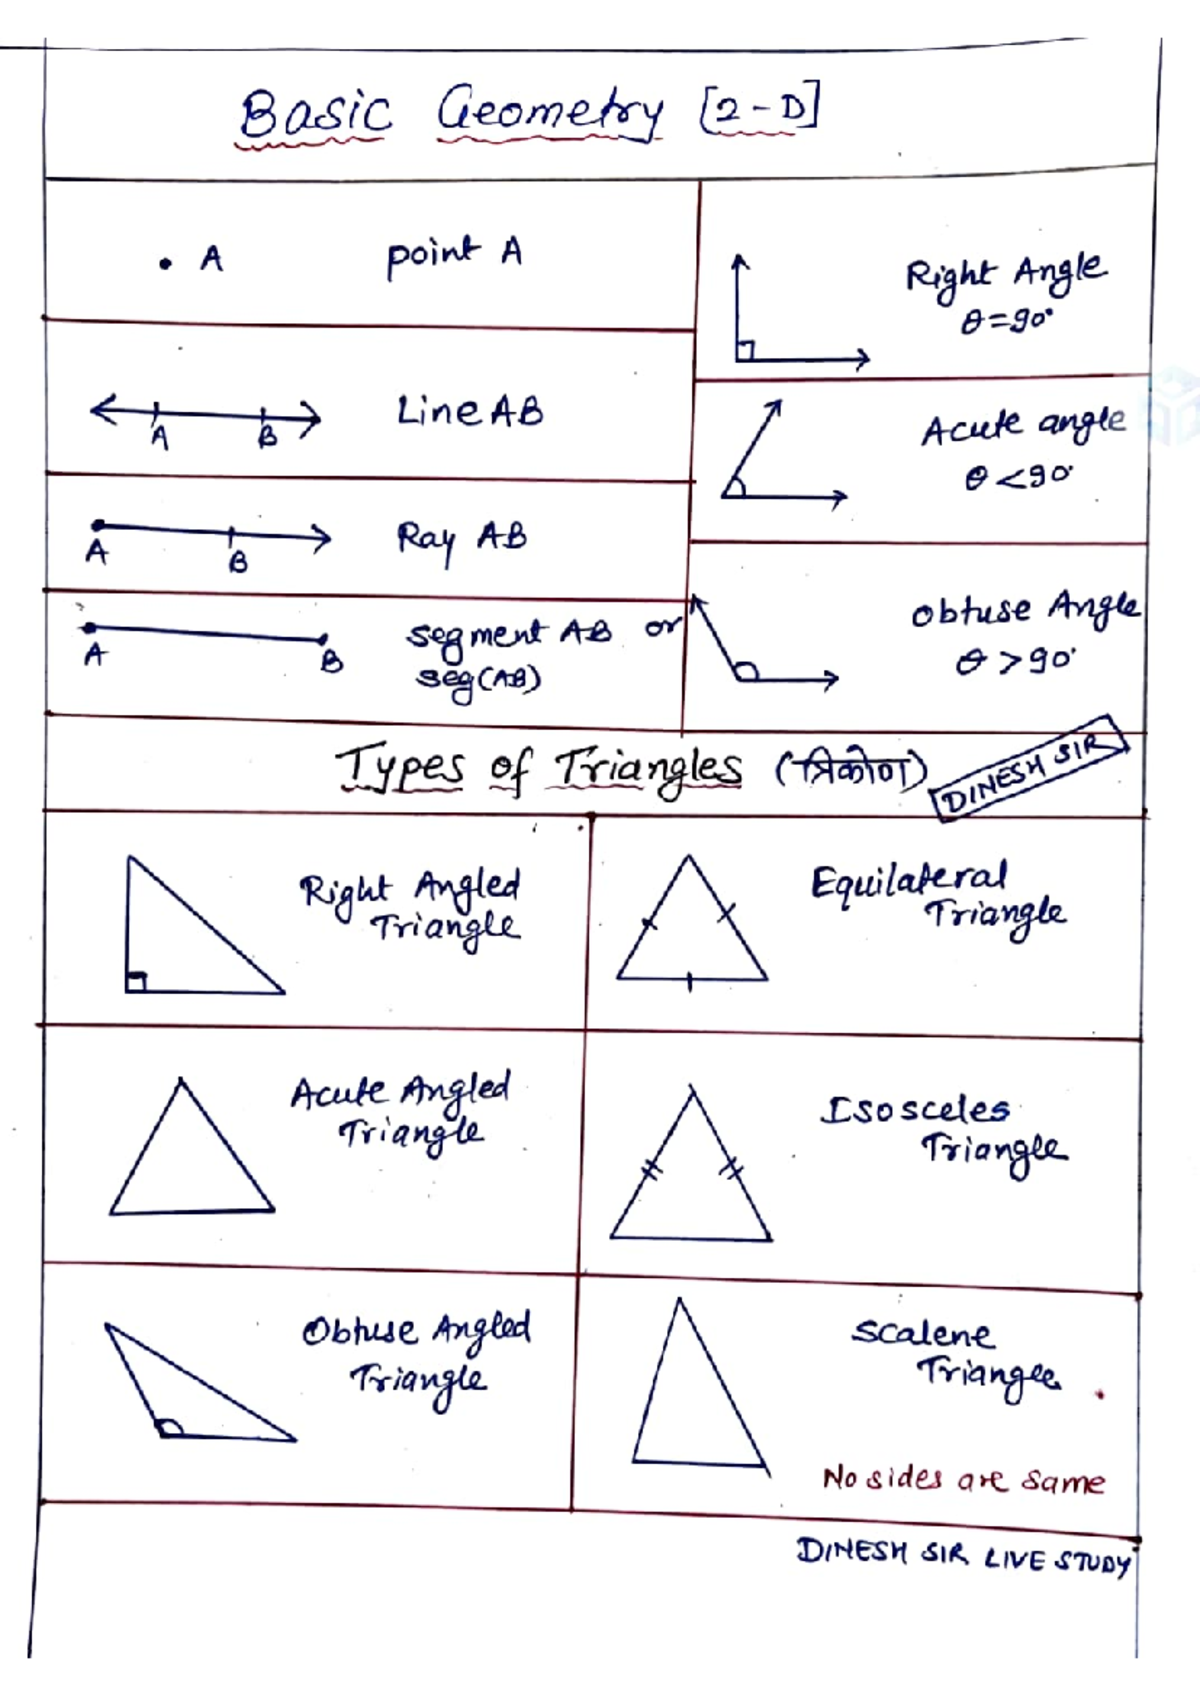 Basic Geometry [2-D]
• A point A
A B Line AB
A B Ray AB
A B segment AB or
seg(AB)
Right Angle
θ=90°
Acute angle
θ<90°
obtuse Angle
θ>90°
Types of Triangles (त्रिकोण)
DINESH SIR
Right Angled
Triangle
Equilateral
Triangle
Acute Angled
Triangle
Isosceles
Triangle
Obtuse Angled
Triangle
Scalene
Triangle
No sides are same
DINESH SIR LIVE STUDY